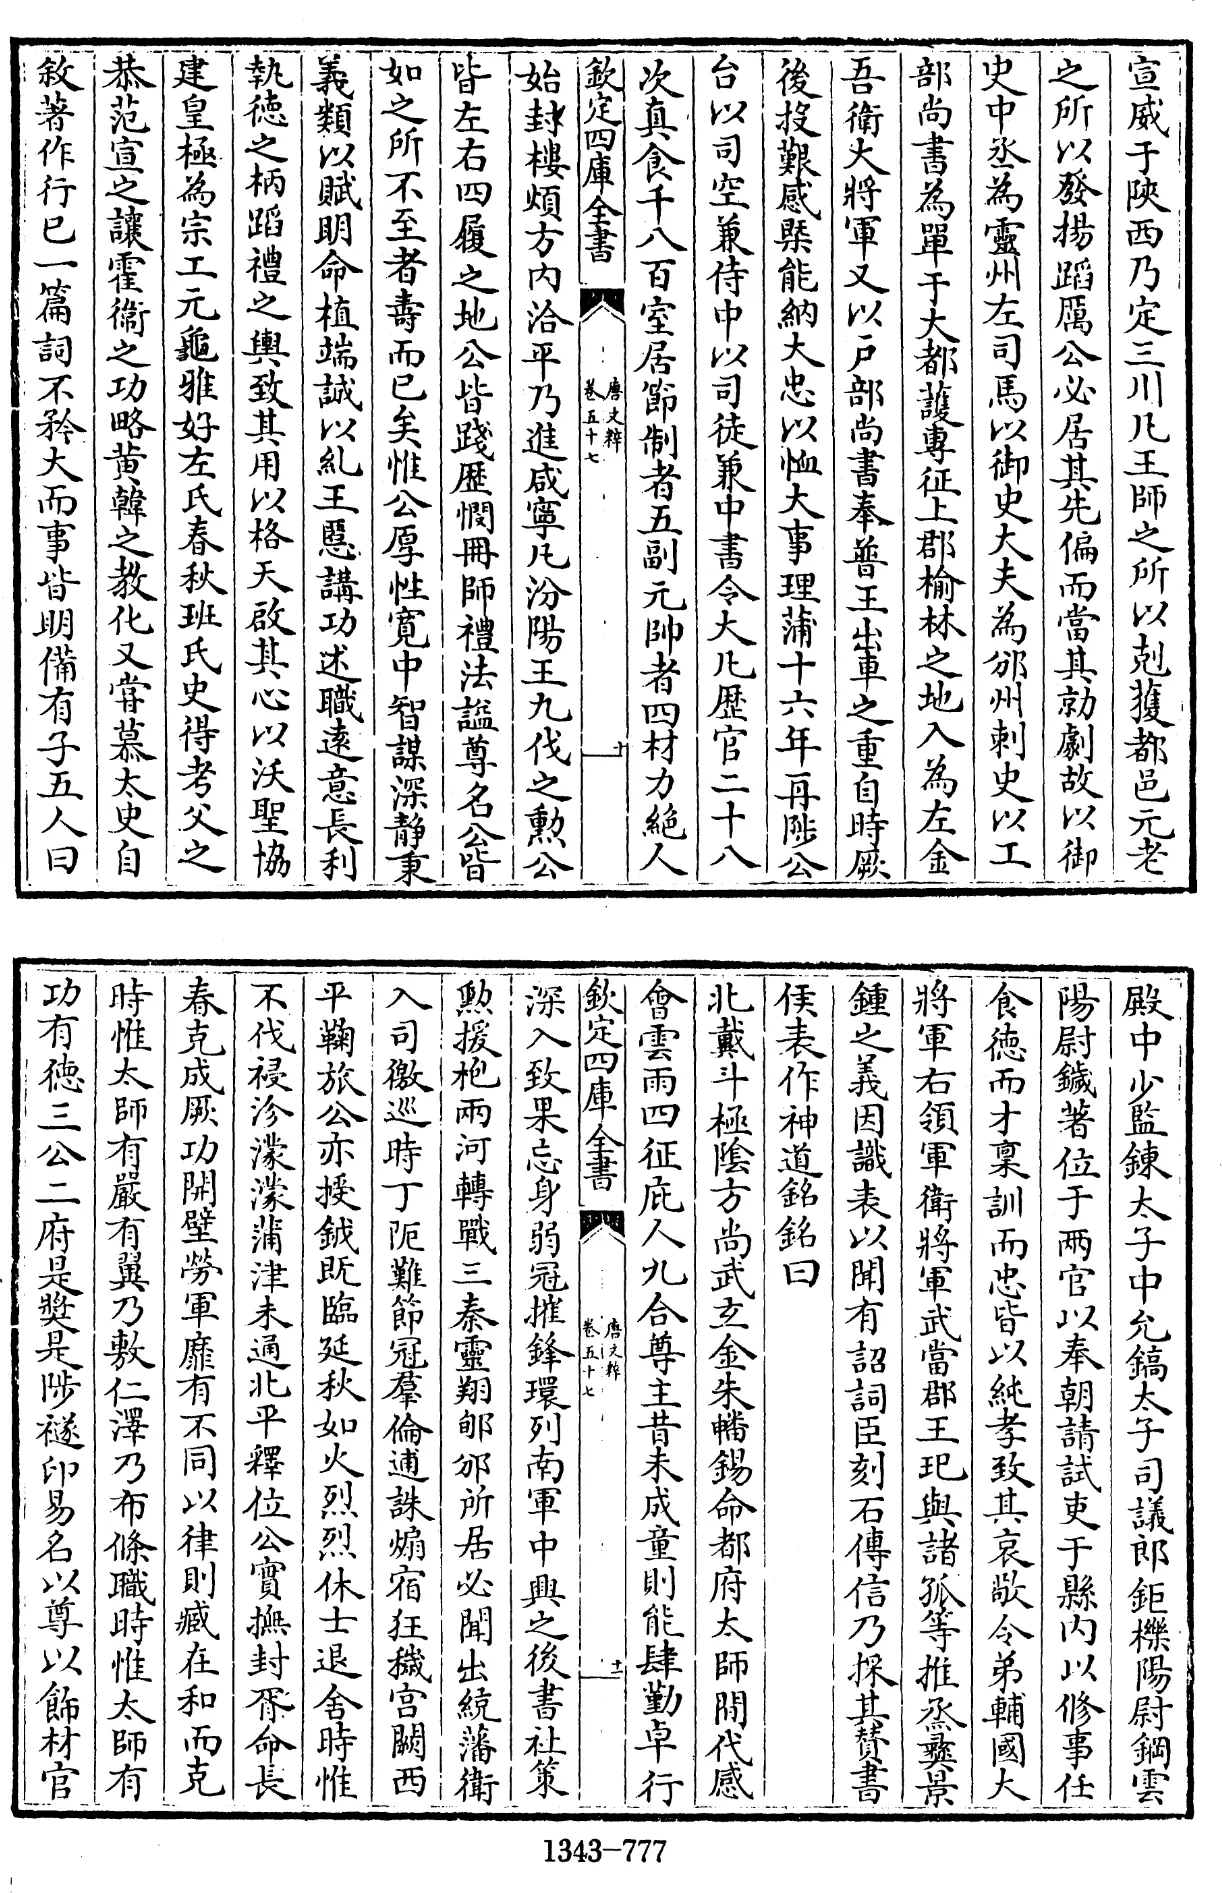 宣威于陜西乃定三川凡王師之所以剋獲都邑元老
之所以發揚蹈厲公必居其先偏而當其勍劇故以御
史中丞為靈州左司馬以御史大夫為邠州刺史以工
部尚書為單于大都護專征上郡榆林之地入為左金
吾衛大將軍又以戶部尚書奉普王出車之重自時厥
後投艱感槩能納大忠以恤大事理蒲十六年再陟公
台以司空兼侍中以司徒兼中書令大凡歷官二十八
次真食千八百室居節制者五副元帥者四材力絶人
欽定四庫全書
唐文粹
卷五十七
十
始封樓煩方內洽平乃進咸寧凡汾陽王九伐之勲公
皆左右四履之地公皆踐歷憫冊師禮法諡尊名公皆
如之所不至者壽而已矣惟公厚性寬中智謀深靜秉
義類以賦明命植端誠以糺王慝講功述職逺意長利
執徳之柄蹈禮之輿致其用以格天啟其心以沃聖協
建皇極為宗工元龜雅好左氏春秋班氏史得考父之
恭范宣之讓霍衛之功略黄韓之教化又甞慕太史自
敘著作行已一篇詞不矜大而事皆明備有子五人曰
殿中少監錬太子中允鎬太子司議郎鉅櫟陽尉鋼雲
陽尉鐬著位于兩官以奉朝請試吏于縣内以修事任
食徳而才稟訓而忠皆以純孝致其哀敬令弟輔國大
將軍右領軍衛將軍武當郡王玭與諸孤等推烝彞景
鍾之義因識表以聞有詔詞臣刻石傳信乃採其贊書
侯表作神道銘銘曰
北戴斗極陰方尚武玄金朱轓錫命都府太師間代感
會雲雨四征庇人九合尊主昔未成童則能肆勤卓行
欽定四庫全書
唐文粹
卷五十七
十一
深入致果忘身弱冠摧鋒環列南軍中興之後書社策
勲援枹兩河轉戰三秦靈翔郇邠所居必聞出統藩衛
入司徼巡時丁阨難節冠羣倫逋誅煽宿狂穢宮闕西
平鞠旅公亦授鉞既臨延秋如火烈烈休士退舍時惟
不伐祲沴濛濛蒲津未通北平釋位公實撫封胥命長
春克成厥功開壁勞軍靡有不同以律則臧在和而克
時惟太師有嚴有翼乃敷仁澤乃布條職時惟太師有
功有徳三公二府是奬是陟襚印易名以尊以飾材官
1343-777